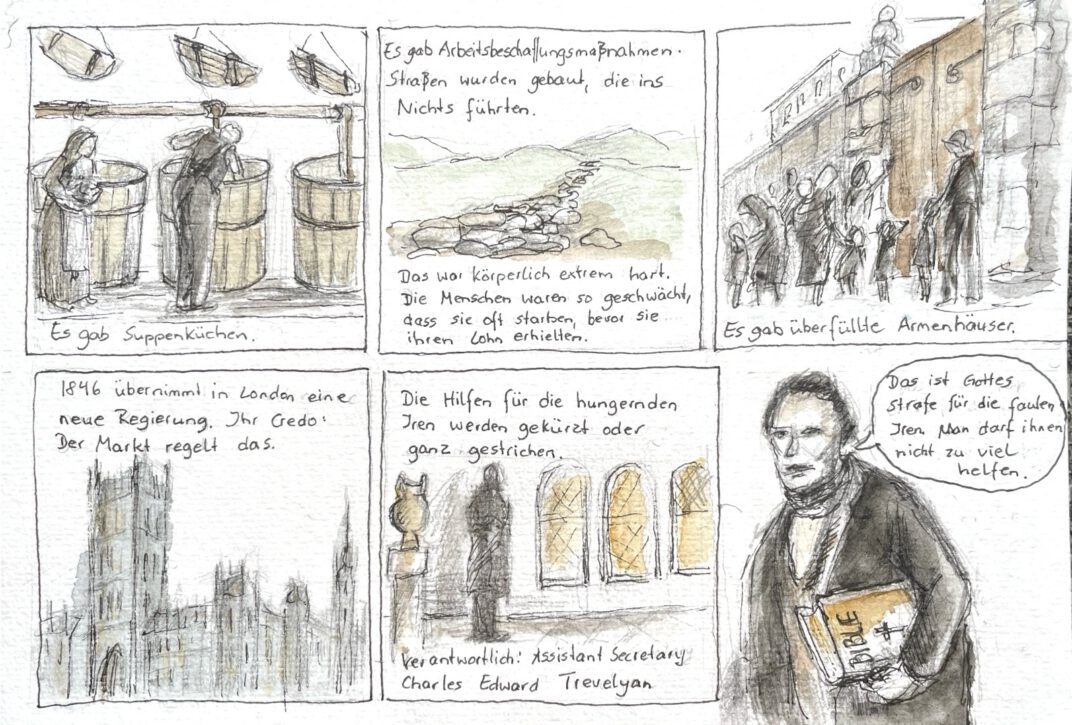 Es gab Suppenküchen.
Es gab Arbeitsbeschaffungsmaßnahmen.
Straßen wurden gebaut, die ins
Nichts führten.
Das war körperlich extrem hart.
Die Menschen waren so geschwächt,
dass sie oft starben, bevor sie
ihren Lohn erhielten.
Es gab überfüllte Armenhäuser.
1846 übernimmt in London eine
neue Regierung. Ihr Credo:
Der Markt regelt das.
Die Hilfen für die hungernden
Iren werden gekürzt oder
ganz gestrichen.
Verantwortlich: Assistant Secretary
Charles Edward Trevelyan
Das ist Gottes
Strafe für die faulen
Iren. Man darf ihnen
nicht zu viel
helfen.
BIBLE